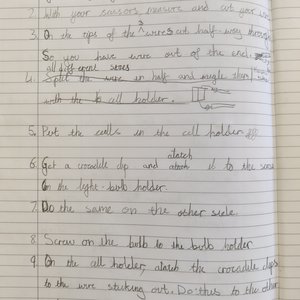 2. With your scissors measure and cut your
3. On the tips of the 3 wires cut half way through
So you have wire out of the end.
all different sizes
4. Split the wire in half and angle them
with the cell holder.
5. Put the cells in the cell holder
6. Get a crocodile clip and atatch it to the
On the light bulb holder.
7. Do the same on the other side.
8. Screw on the bulb to the bulb holder
9. On the cell holder, atatch the crocodile clips
to the wire sticking out. Do this to the other